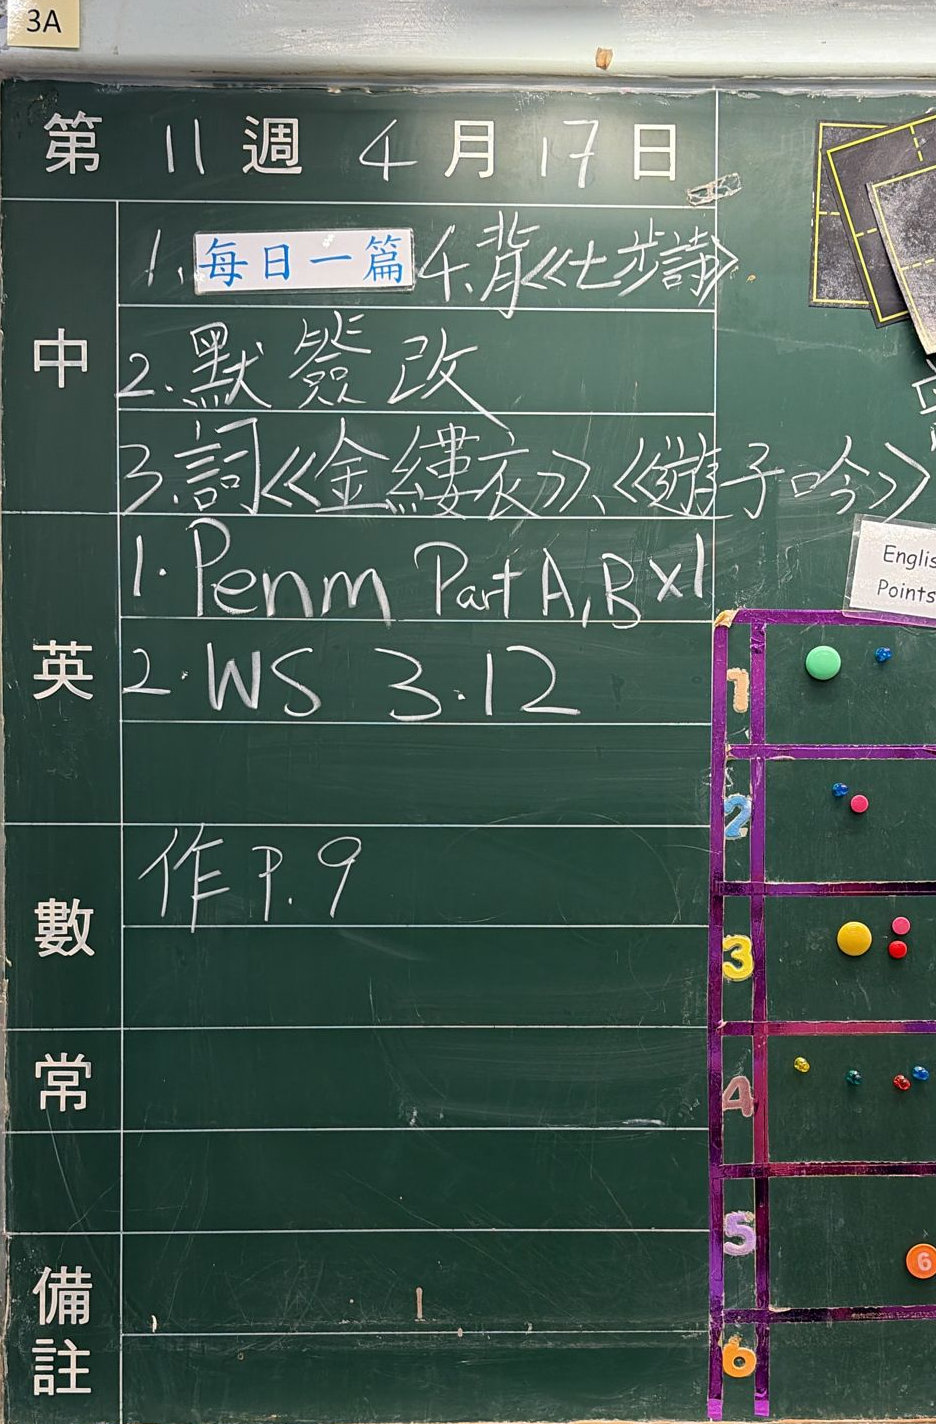 3A
第 11 週 4 月 17 日
中
1. 每日一篇 4. 背《七步詩》
2. 默簽改
3. 詞《金縷衣》、《遊子吟》
英
1. Penm Part A, B x1
2. WS 3.12
數
作 P. 9
常
備註
Points
1
2
3
4
5
6
6